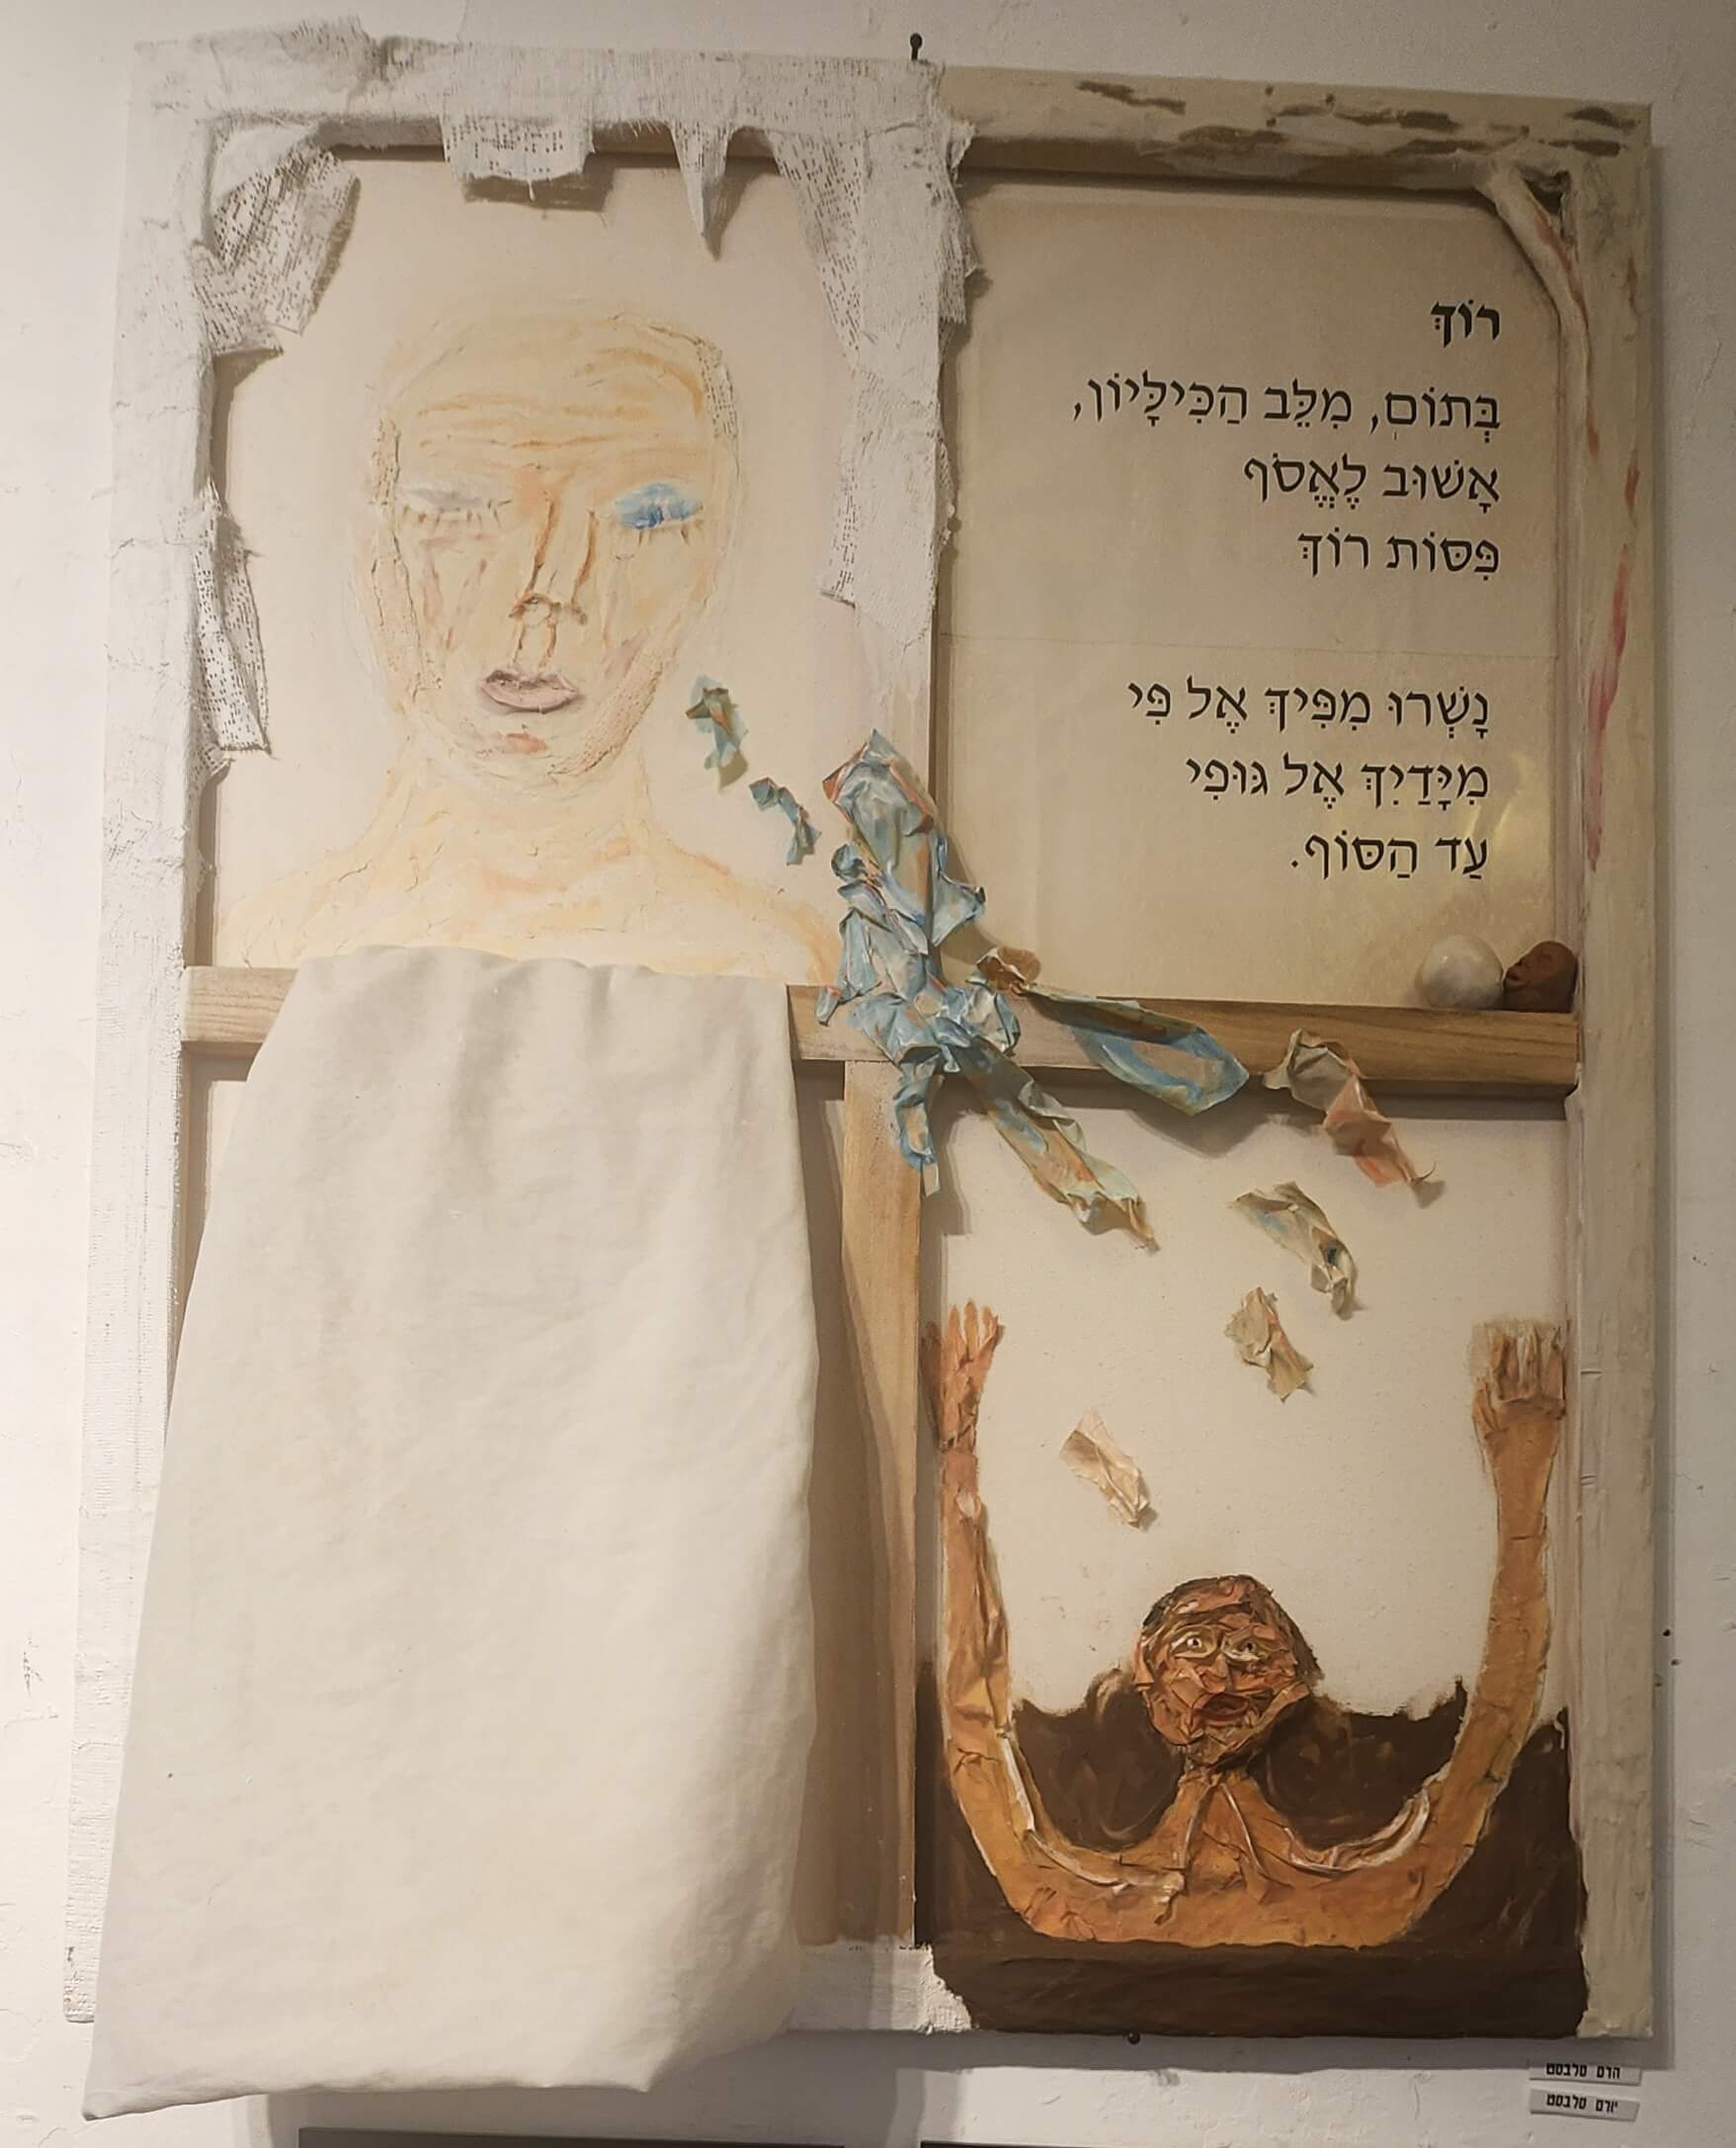 רוֹךְ
בְּתוֹם, מִלֵּב הַכִּילָּיוֹן,
אָשׁוּב לֶאֱסֹף
פִּסּוֹת רוֹךְ
נָשְׁרוּ מִפִּיךְ אֶל פִּי
מִיָּדַיִךְ אֶל גּוּפִי
עַד הַסּוֹף.
הדס סלבסט
יורם סלבסט